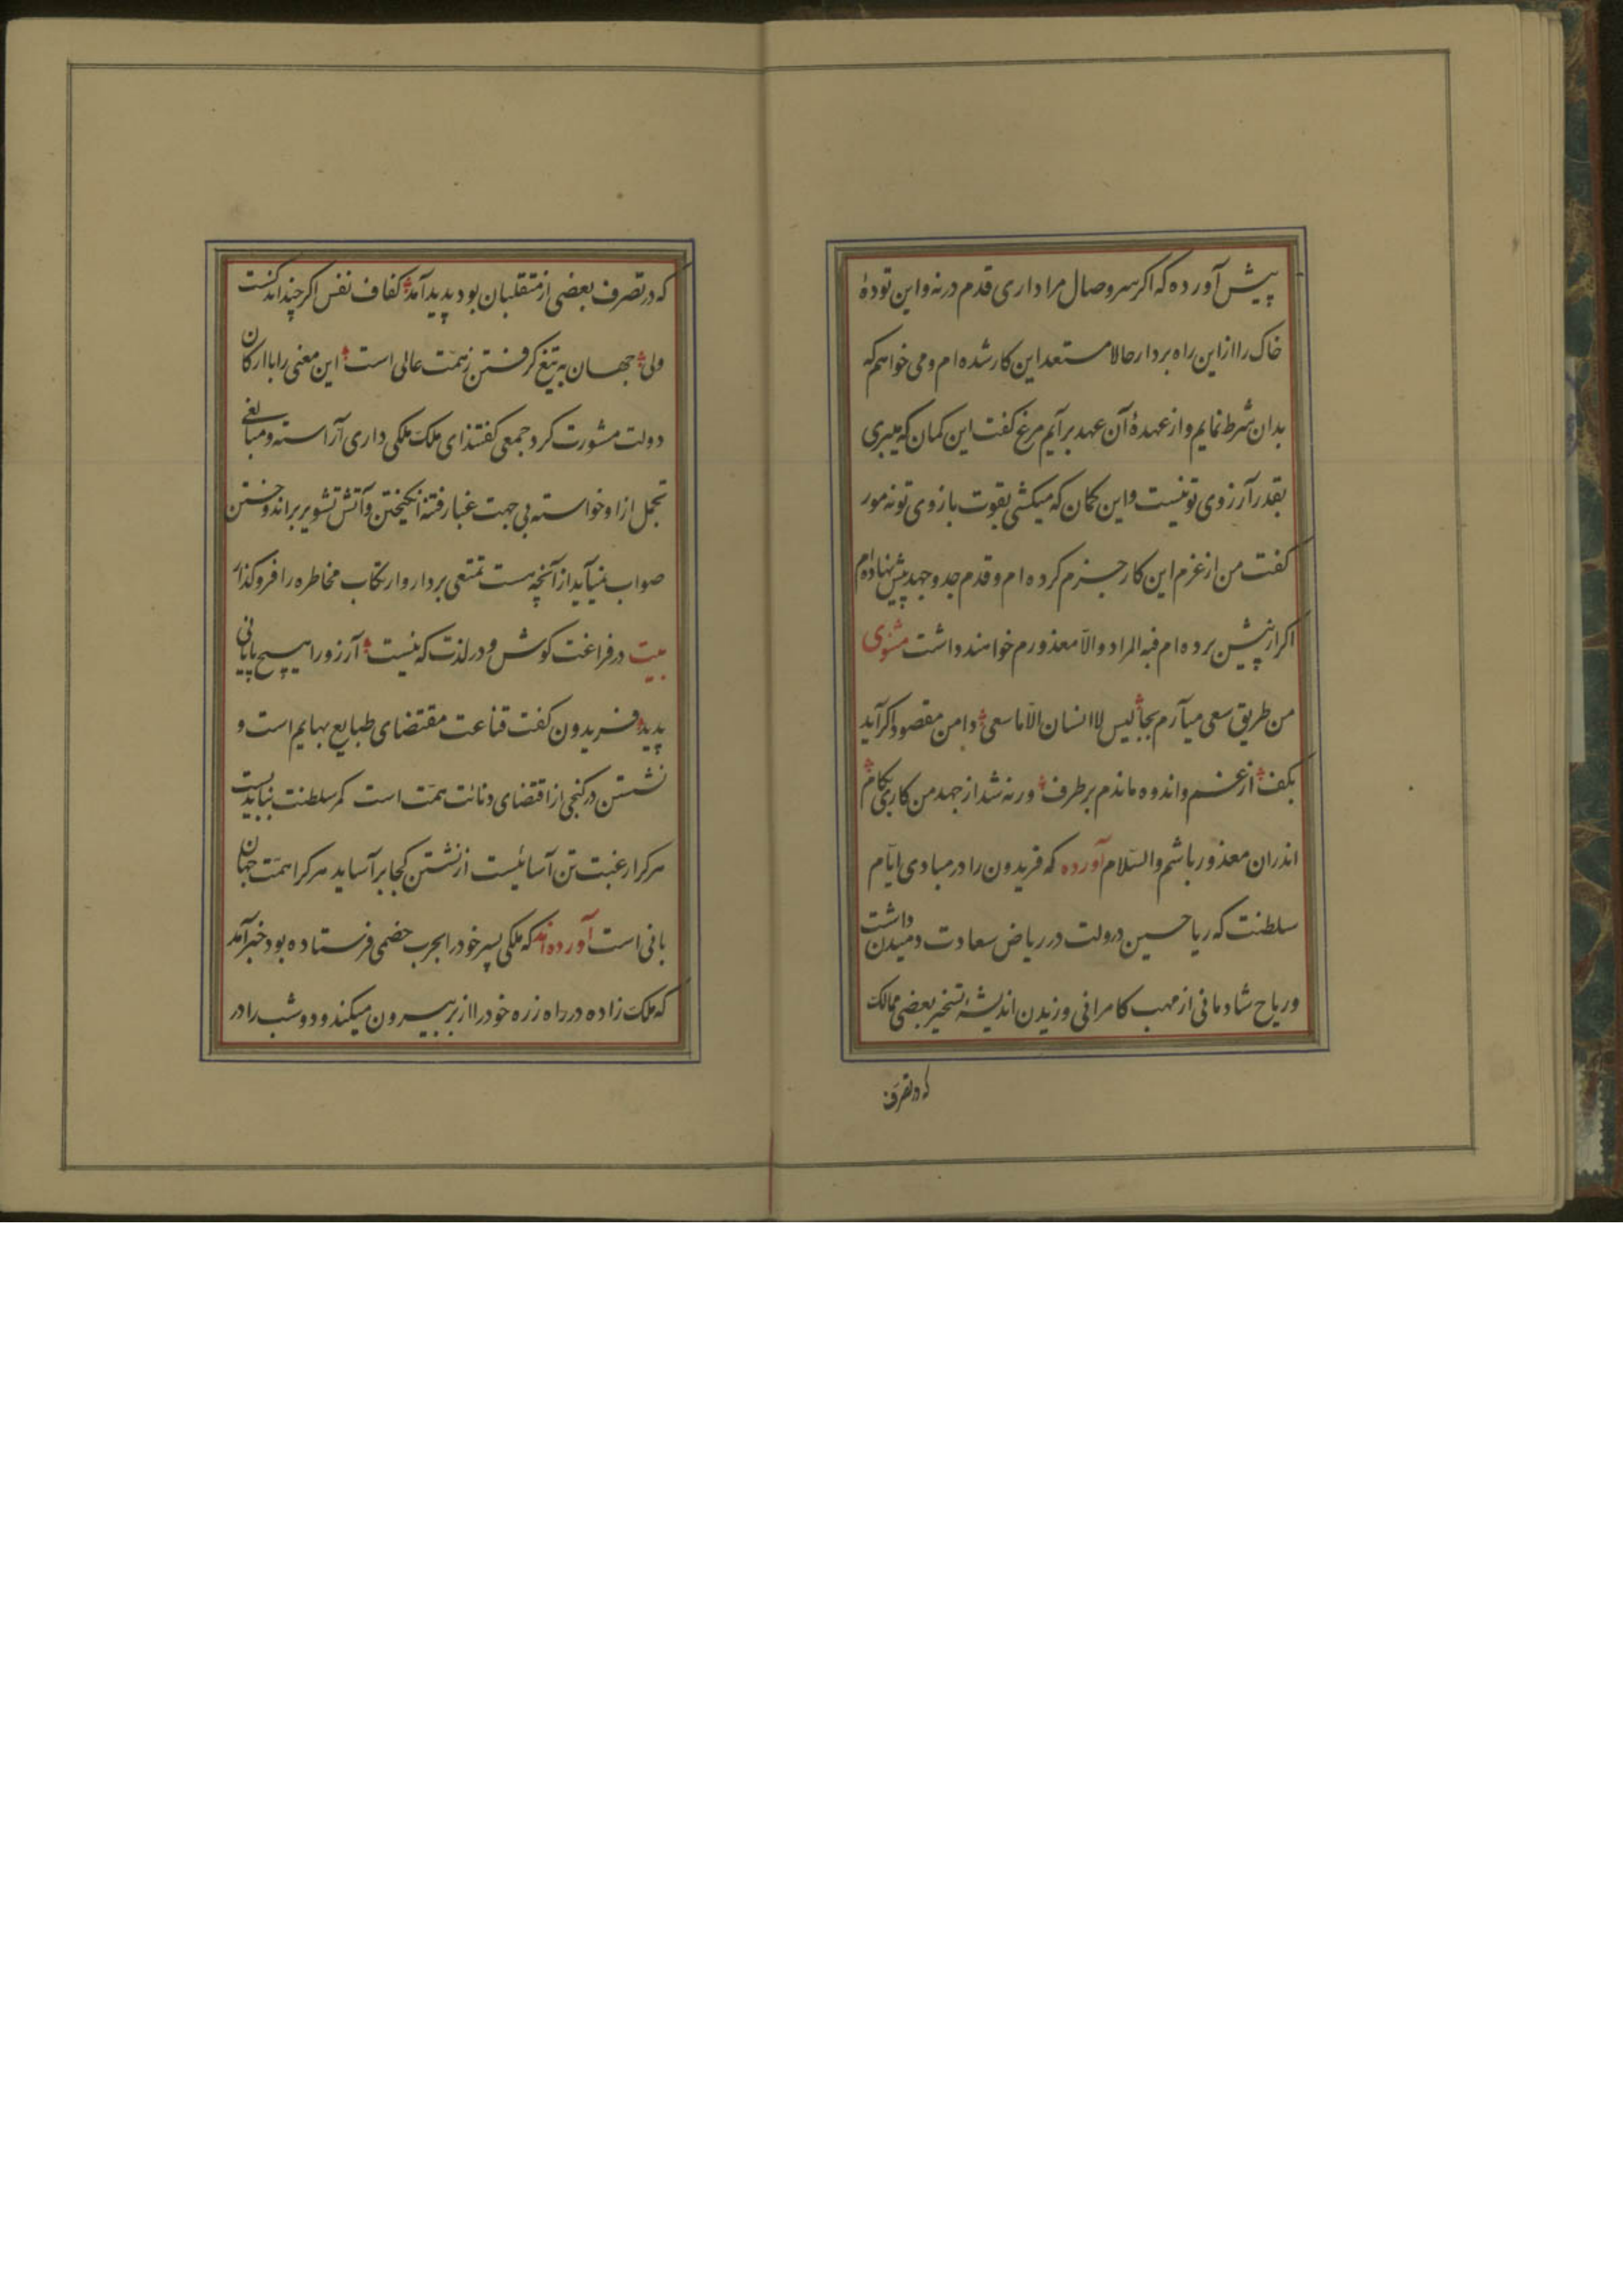 پیش آورده که اگر سر وصال مرا داری قدم در نه و این تودهٔ
خاک را از این راه بردار حالا مستعد این کار شده ام و می خواهم که
بدان شرط نمایم و از عهدهٔ آن عهد برآیم مرغ کفت این کمان که میبری
بقدر آرزوی تو نیست و این کمان که میکشی بقوت بازوی تو نه مور
کفت من از عزم این کار جزم کرده ام و قدم جد و جهد پیش نهاده ام
اکر از پیش برده ام فبه المراد و الّا معذورم خواهند داشت مثنوی
من طریق سعی میآرم بجا لیس لاانسان الّا ما سعی دامن مقصود اکر آید
بکف از غم و اندوه ماندم بر طرف ورنه شد از جهد من کاری بکام
اندران معذور باشم والسّلام آورده که فریدون را در مبادی ایّام
سلطنت که ریاحسین دولت در ریاض سعادت دمیدن داشت
و ریاح شادمانی از مهب کامرانی وزیدن اندیشهٔ تسخیر بعضی ممالک
که در تصرف
که در تصرف بعضی از متقلبان بود پدید آمد کفاف نفس اکر چند اندکست
ولی جهان به تیغ کرفتن ز همّت عالی است این معنی را با ارکان
دولت مشورت کرد جمعی کفتند ای ملک ملکی داری آراسته و مبالغی
تجمل از او خواسته بی جهت غبار فتنه انکیختن و آتش تشویر بر اندوختن
صواب نمیآید از آنچه هست تمتعی بردار و ارتکاب مخاطره را فرو کذار
بیت در فراغت کوش و در لذت که نیست آرزو را هیچ پایانی
پدید فریدون کفت قناعت مقتضای طبایع بهایم است و
نشستن در کنجی از اقتضای دنائت همّت است کمر سلطنت نباید بست
هر کرا رغبت تن آسائیست از نشستن کجا برآساید هر کرا همّت جهان
بانی است آورده اند که ملکی پسر خود را بحرب خصمی فرستاده بود خبر آمد
که ملک زاده در راه زره خود را از بر بیرون میکند و دو شب را در